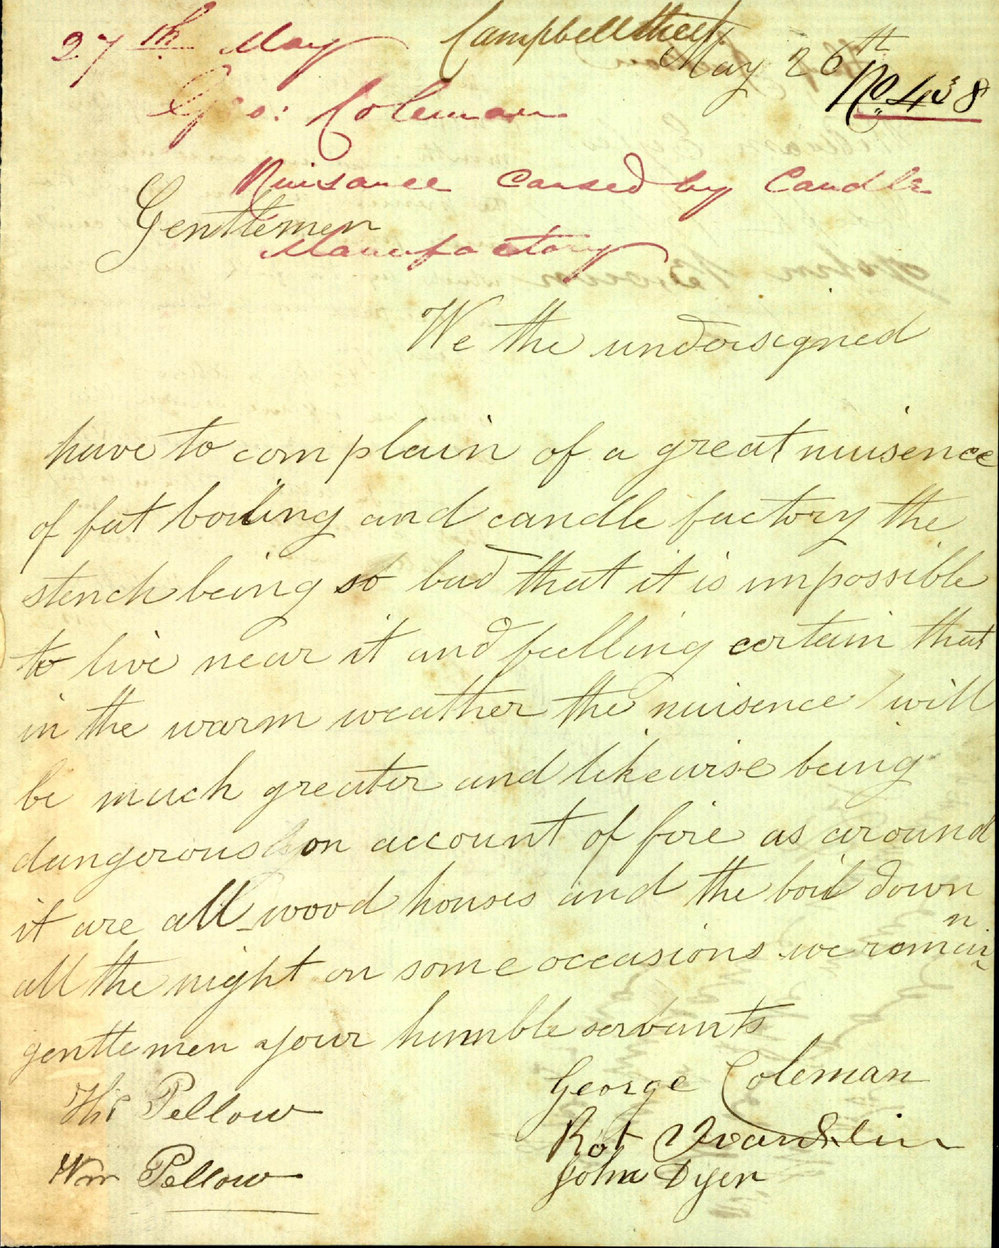 27th May
Campbell Street
May 26th
No. 438
Geo: Coleman
Nuisance caused by Candle
Manufactory
Gentlemen
We the undersigned
have to complain of a great nuisence
of fat boiling and candle factory the
stench being so bad that it is impossible
to live near it and feelling certain that
in the warm weather the nuisence will
be much greater and likewise being
dangerous on account of fire as around
it are all wood houses and the boil down
all the night on some occasions we remain
gentlemen your humble servants
George Coleman
Thos Pellow
Rot Franklin
Wm Pellow
John Dyer